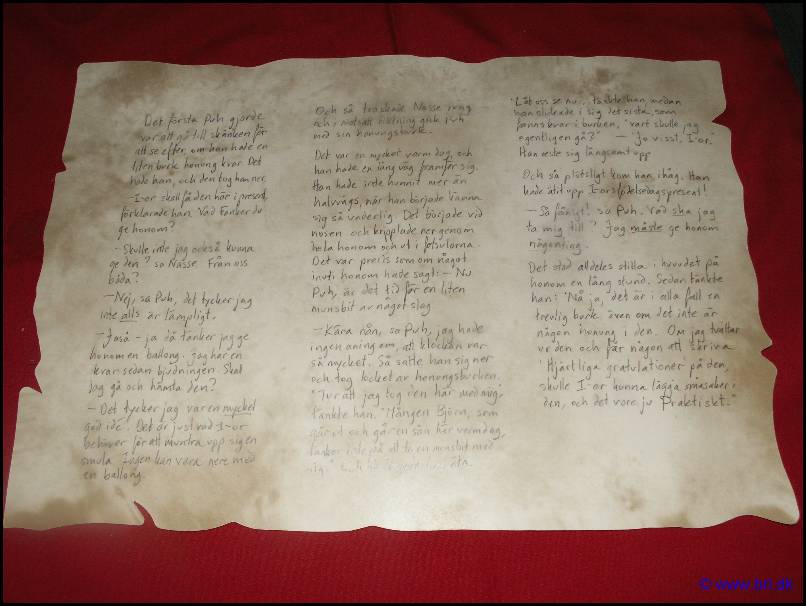 Det första Puh gjorde
var att gå till skänken för
att se efter, om han hade en
liten burk honung kvar. Det
hade han, och den tog han ner.
- I-or skall få den här i present,
förklarade han. Vad tänker du
ge honom?
- Skulle inte jag också kunna
ge den? sa Nasse. Från oss
båda?
- Nej, sa Puh, det tycker jag
inte alls är lämpligt.
- Jaså - ja då tänker jag ge
honom en ballong. Jag har en
kvar sedan bjudningen. Skall
jag gå och hämta den?
- Det tycker jag var en mycket
god idé. Det är just vad I-or
behöver för att muntra upp sig en
smula. Ingen kan vara nere med
en ballong.
Och så traskade Nasse iväg
och i motsatt riktning gick Puh
med sin honungsburk.
Det var en mycket varm dag, och
han hade en lång väg framför sig.
Han hade inte hunnit mer än
halvvägs, när han började känna
sig så underlig. Det började vid
nosen och kripplade ner genom
hela honom och ut i fotsulorna.
Det var precis som om något
inuti honom hade sagt: - Nu
Puh, är det tid för en liten
munsbit av något slag
- Kära nån, sa Puh, jag hade
ingen aning om, att klockan var
så mycket. Så satte han sig ner
och tog locket av honungsburken.
"Tur att jag tog den här med mig",
tänkte han. "Mången Björn, som
går ut och går en sån här varm dag,
tänker inte på att ta en munsbit med
sig." Och började äta.
"Låt oss se nu... tänkte han, medan
han slickade i sig det sista, som
fanns kvar i burken, "vart skulle jag
egentligen gå?" - "Jo visst, I-or."
Han reste sig långsamt upp
Och så plötsligt kom han ihåg. Han
hade ätit upp I-ors födelsedagspresent!
- Så fånigt! sa Puh. Vad ska jag
ta mig till? Jag måste ge honom
någonting.
Det stod alldeles stilla i huvudet på
honom en lång stund. Sedan tänkte
han: "Nå ja, det är i alla fall en
trevlig burk även om det inte är
någon honung i den. Om jag tvättar
ur den och får någon att skriva
'Hjärtliga gratulationer på den,
skulle I-or kunna lägga småsaker i
den, och det vore ju Praktiskt."
© www.bri.dk